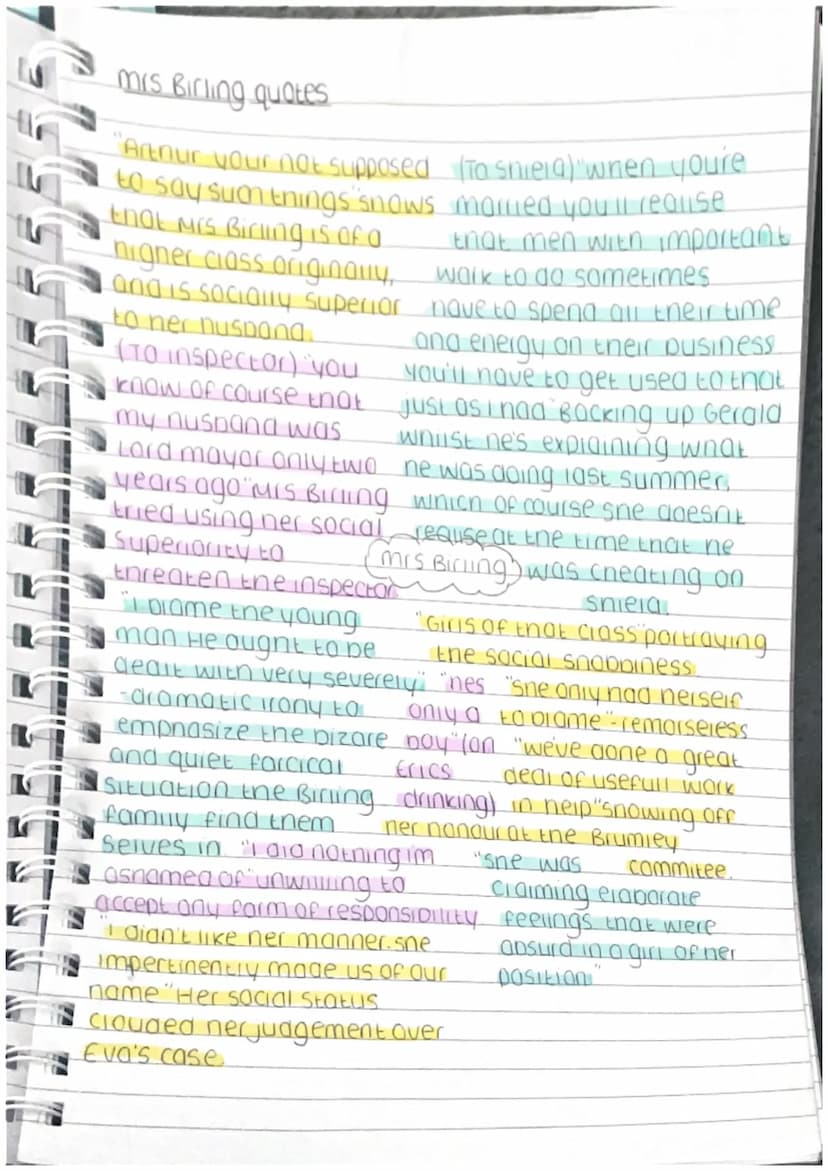 mrs Birling quotes
"Arthur your not supposed
to say such things" shows
that Mrs Birling is of a
higher class originally,
and is socially superior
to her husband.
(To inspector) "you
know of course that
my husband was
Lord mayor only two
years ago" Mrs Birling
tried using her social
superiority to
threaten the inspector
"I blame the young
man He ought to be
dealt with very severely"
-dramatic irony to
emphasize the bizare
and quiet farcical
situation the Birling
family find them
selves in
"I did nothing im
ashamed of" unwilling to
accept any form of responsibility
"I didn't like her manner. she
impertinently made us of our
name" Her social status
clouded her judgement over
Eva's case
(To shiela) "when you're
married you'll realise
that men with important
work to do sometimes
have to spend all their time
and energy on their business
you'll have to get used to that
just as I had" Backing up Gerald
whilst he's explaining what
he was doing last summer,
which of course she doesnt
realise at the time that he
was cheating on
shiela.
mrs Birling
"Girls of that class" portraying
the social snobbiness
"hes
only a
boy" (on
Erics
drinking)
"she only had herself
to blame" - remorseless
"we've done a great
deal of usefull work
in help" showing off
her honour at the Brumley
commitee.
"she was
claiming elaborate
feelings that were
absurd in a girl of her
position"